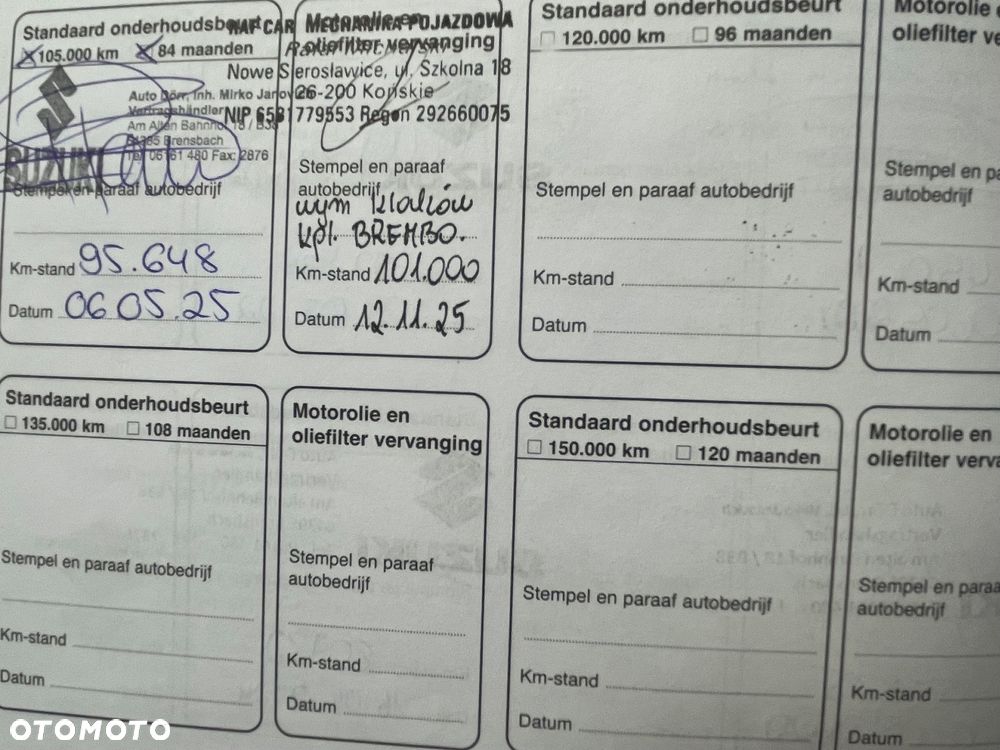 Standaard onderhoudsbeurt
105.000 km 84 maanden
Auto Dörr, Inh. Mirko Janov
Vertragshändler
Am Alten Bahnhof 18 / B38
Brensbach
480 Fax: 2876
SUZUKI
Stempel en paraaf autobedrijf
Km-stand 95.648
Datum 06 05.25
Motorolie en
oliefilter vervanging
CAR MECHANIKA POJAZDOWA
Nowe Sierosławice, ul. Szkolna 18
26-200 Końskie
NIP 6581779553 Regon 292660075
Stempel en paraaf
autobedrijf
wym klocków
kpl. BREMBO.
Km-stand 101.000
Datum 12.11.25
Standaard onderhoudsbeurt
120.000 km 96 maanden
Stempel en paraaf autobedrijf
Km-stand
Datum
Motorolie
oliefilter
Stempel en
autobedrijf
Km-stand
Datum
Standaard onderhoudsbeurt
135.000 km 108 maanden
Stempel en paraaf autobedrijf
Km-stand
Datum
Motorolie en
oliefilter vervanging
Stempel en paraaf
autobedrijf
Km-stand
Datum
Standaard onderhoudsbeurt
150.000 km 120 maanden
Stempel en paraaf autobedrijf
Km-stand
Datum
Motorolie en
oliefilter
Stempel en paraa
autobedrijf
Km-stand
Datum
OTOMOTO